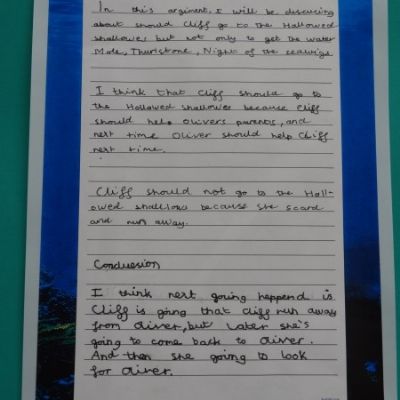 In this argument, I will be discussing
about should Cliff go to the Hallowed
shallows but not only to get the water
Mole, Thurlstone, Night of the seawigs
I think that Cliff should go to
the Hollowed shallows because Cliff
should help Olivers parents, and
next time Oliver should help Cliff
next time.
Cliff should not go to the Hall-
owed shallows because she scard
and run away.
Conclusion
I think next going happend is
Cliff is going that Cliff run away
from Oliver, but later she's
going to come back to Oliver.
And then she going to look
for Oliver.